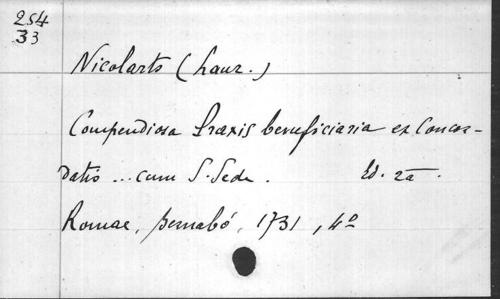 254
33
Nicolarts (Laur.)
Compendiosa Praxis beneficiaria ex Concor-
datis ... cum S. Sede. Ed. 2a.
Romae, Bernabó, 1731, 4º